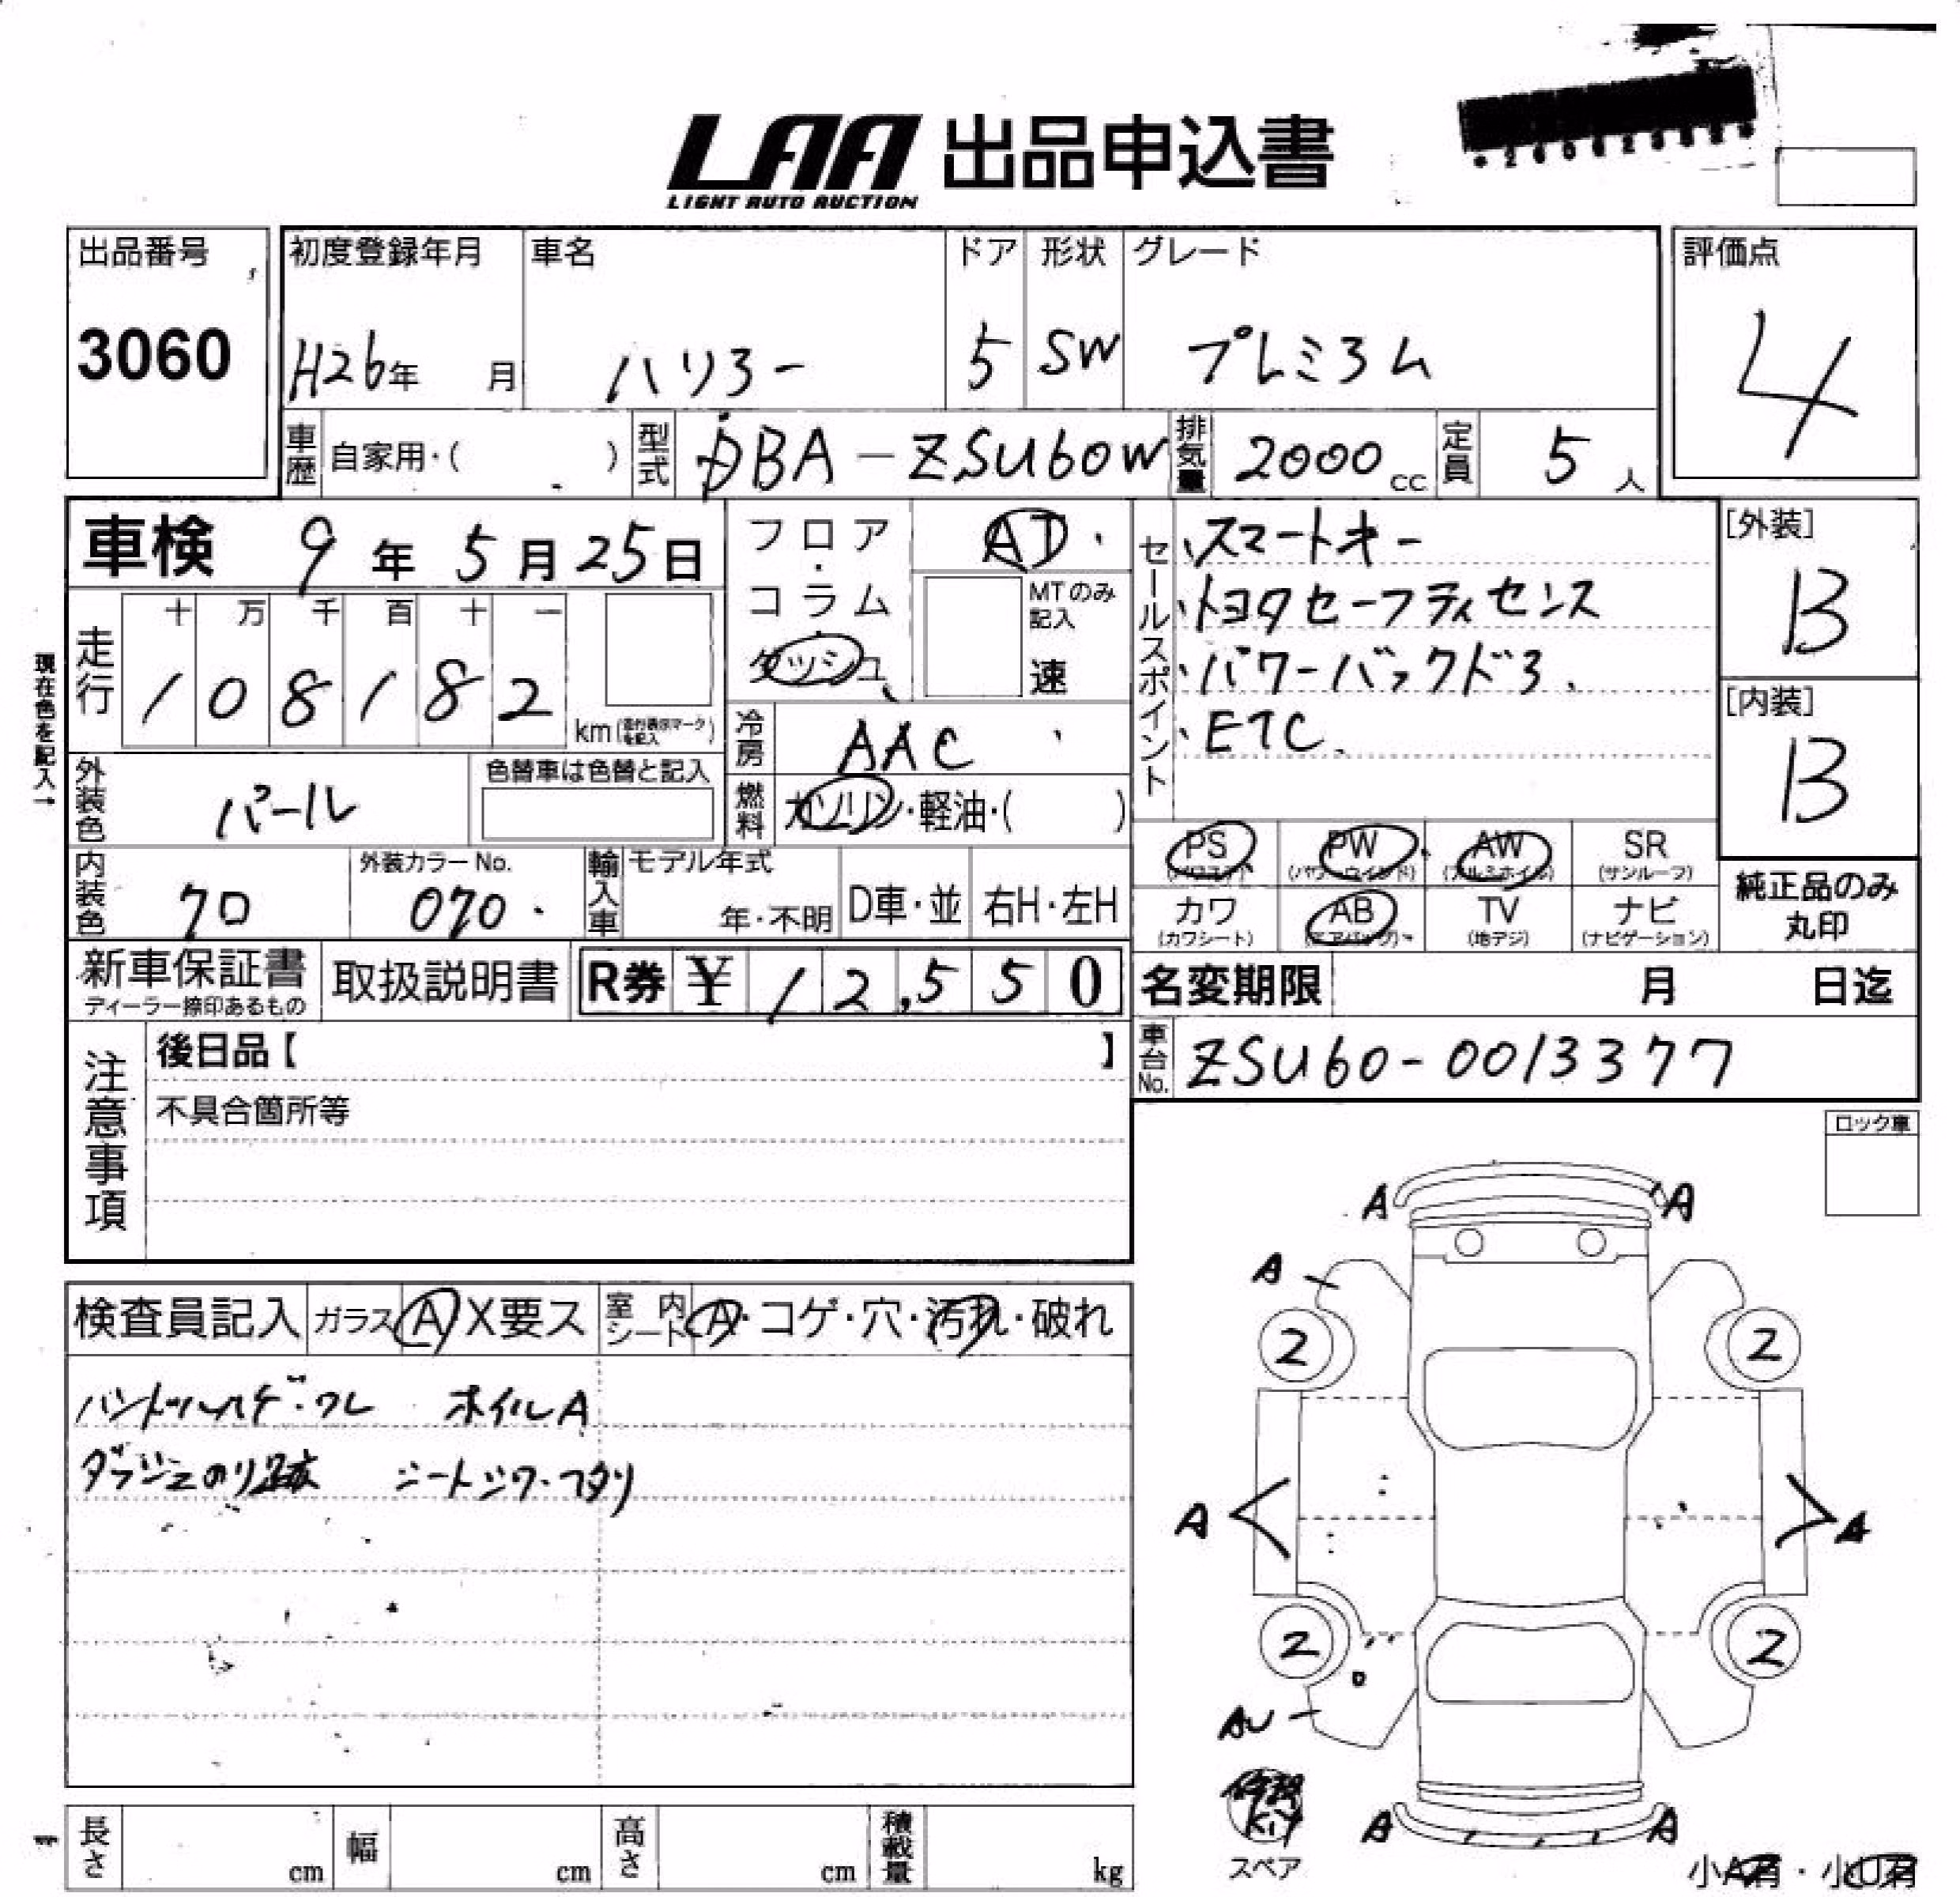 LAA 出品申込書
LIGHT AUTO AUCTION
出品番号
3060
初度登録年月
H26年 月
車名
ハリヨー
ドア
5
形状
SW
グレード
プレミヨム
評価点
4
車歴 自家用・( )
型式 DBA-ZSU60W
排気量 2000 cc
定員 5 人
車検 9年 5月 25日
フロア・コラム・ダッシュ
AT
MTのみ記入
速
セールスポイント
スマートキー
トヨタセーフティセンス
パワーバックドヨ.
ETC.
[外装]
B
[内装]
B
現在色を記入→
走行
十 万 千 百 十 一
1 0 8 1 8 2
km
冷房 AAC
外装色 パール
色替車は色替と記入
燃料 ガソリン・軽油・( )
内装色 クロ
外装カラーNo.
070
輸入車
モデル年式
年・不明
D車・並
右H・左H
PS (パワステ)
PW (パワーウインド)
AW (アルミホイル)
SR (サンルーフ)
カワ (カワシート)
AB (エアバッグ)
TV (地デジ)
ナビ (ナビゲーション)
純正品のみ
丸印
新車保証書
ディーラー捺印あるもの
取扱説明書
R券 ¥ 12,550
名変期限 月 日迄
車台No. ZSU60-0013377
注意事項
後日品【 】
不具合箇所等
ロック車
検査員記入
ガラス A X要ス
室内シート A・コゲ・穴・汚れ・破れ
ハンドルハゲ・ワレ ホイルA
ダッシュのり跡 シートシワ・ヘタリ
A A
A
2 2
A A
2 2
AU
A A
修理
Kit
スペア
小A有・小U有
長さ cm
幅 cm
高さ cm
積載量 kg